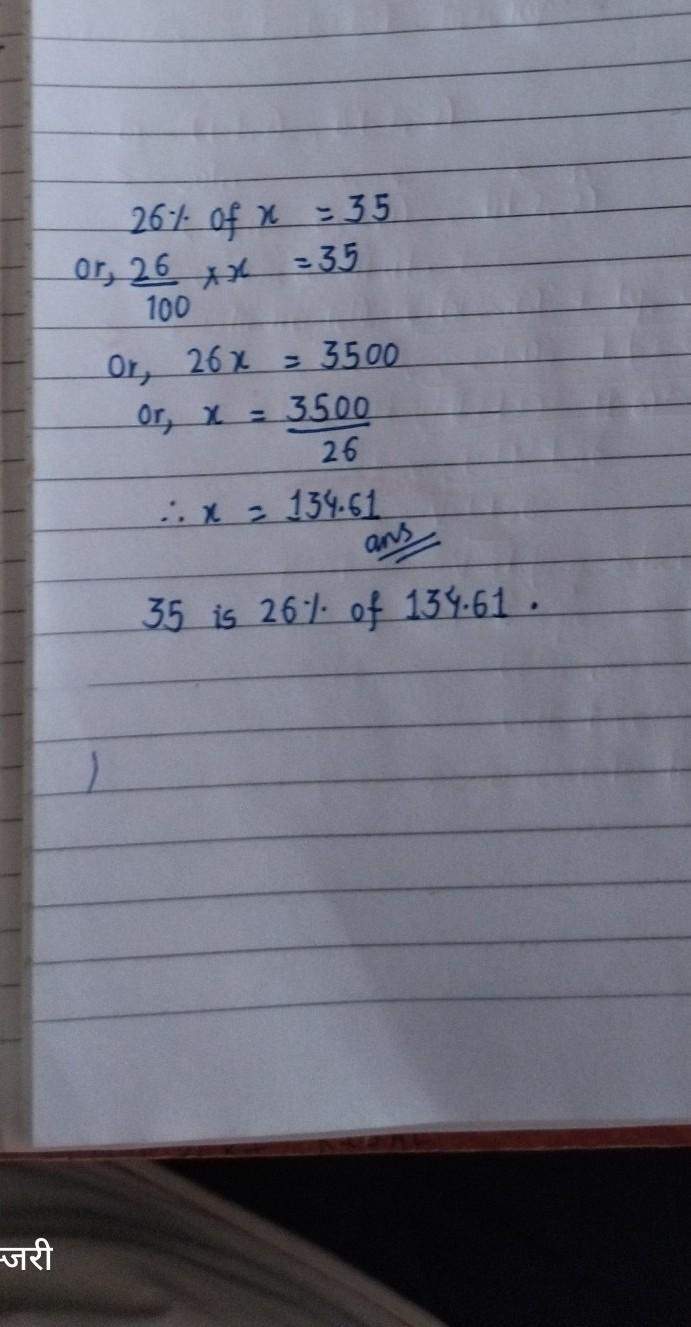 26% of x = 35
or, 26/100 × x = 35
or, 26x = 3500
or, x = 3500/26
∴ x = 134.61
ans
35 is 26% of 134.61 .